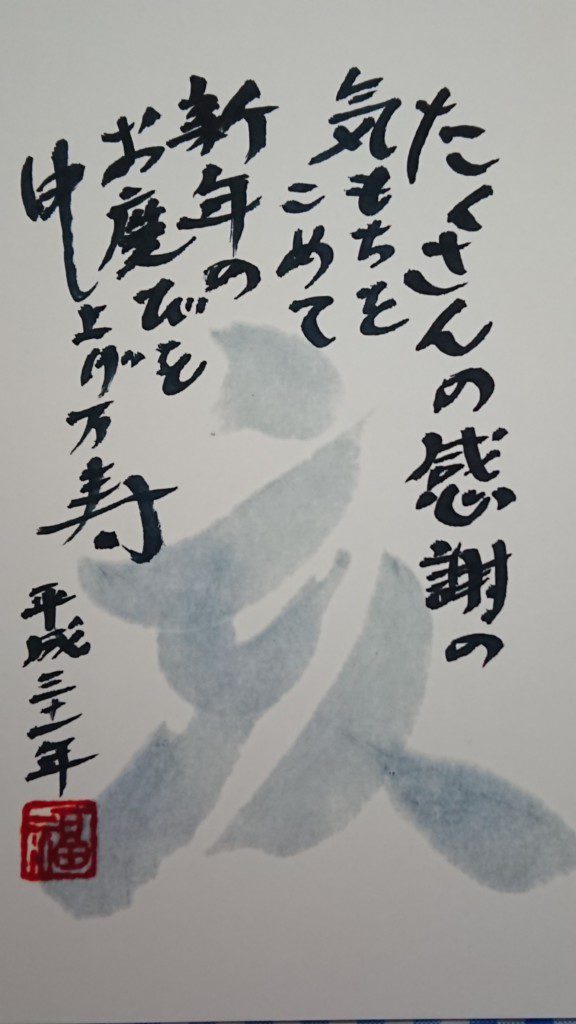 たくさんの感謝の
気もちを
こめて
新年の
お慶びを
申上げ万寿
平成三十一年
福
亥